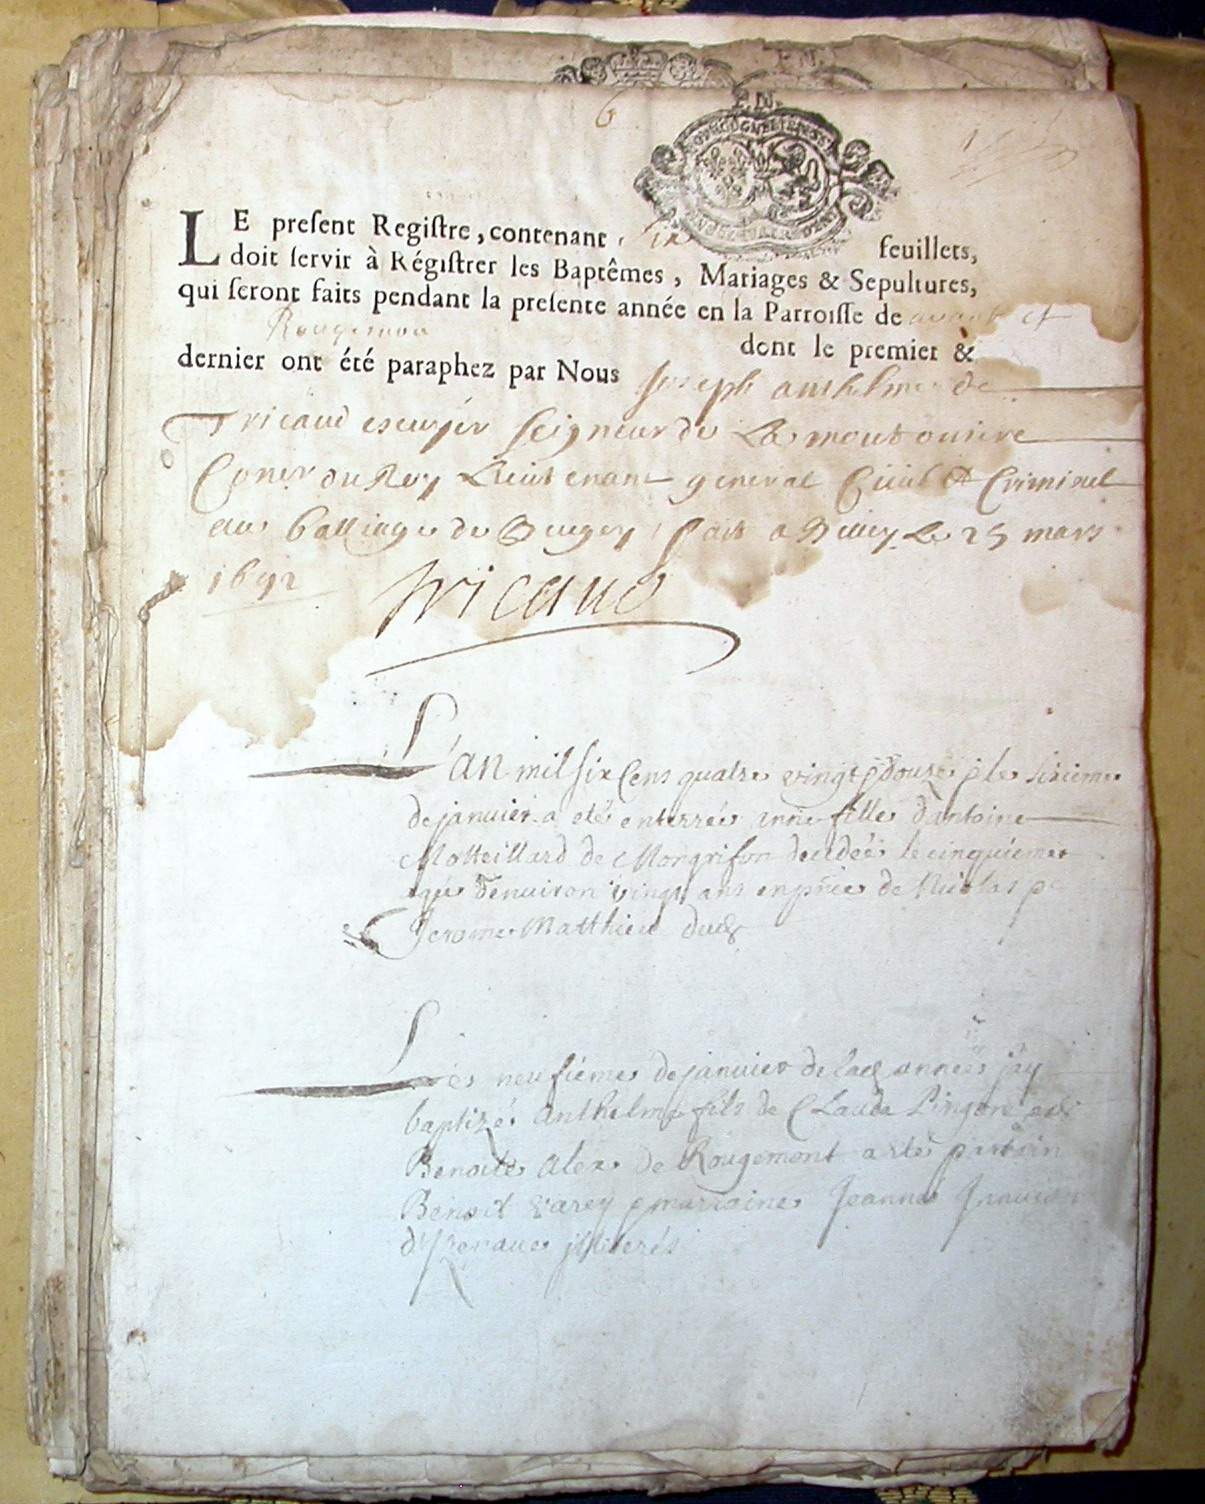 6
P.N.
LE preſent Regiſtre, contenant ſix feuillets,
doit ſervir à Régiſtrer les Baptêmes, Mariages & Sepultures,
qui ſeront faits pendant la preſente année en la Parroiſſe de et
Rougemon dont le premier &
dernier ont été paraphez par Nous Joseph anthelme de
Tricaud escuyer Seigneur de La moutonniere
Coner du Roy Lieutenant general Ciuil & Criminel
au balliage de Bugey, fait a Belley Le 25 mars
1692 Tricaud
L'an mil six cens quatre vingt douze le sixieme
de janvier a eté enterrée une fille d'antoine
de Mongrifon decedée le cinquieme
agée d'enuiron vingt ans en pñce de Nicolas
Jerome Matthieu
Le neufieme de januier de lad année jay
baptizé Anthelme fils de Claude
Benoite alex de Rougemont a eté parrain
Benoit Varey marraine Jeanne
illiterés